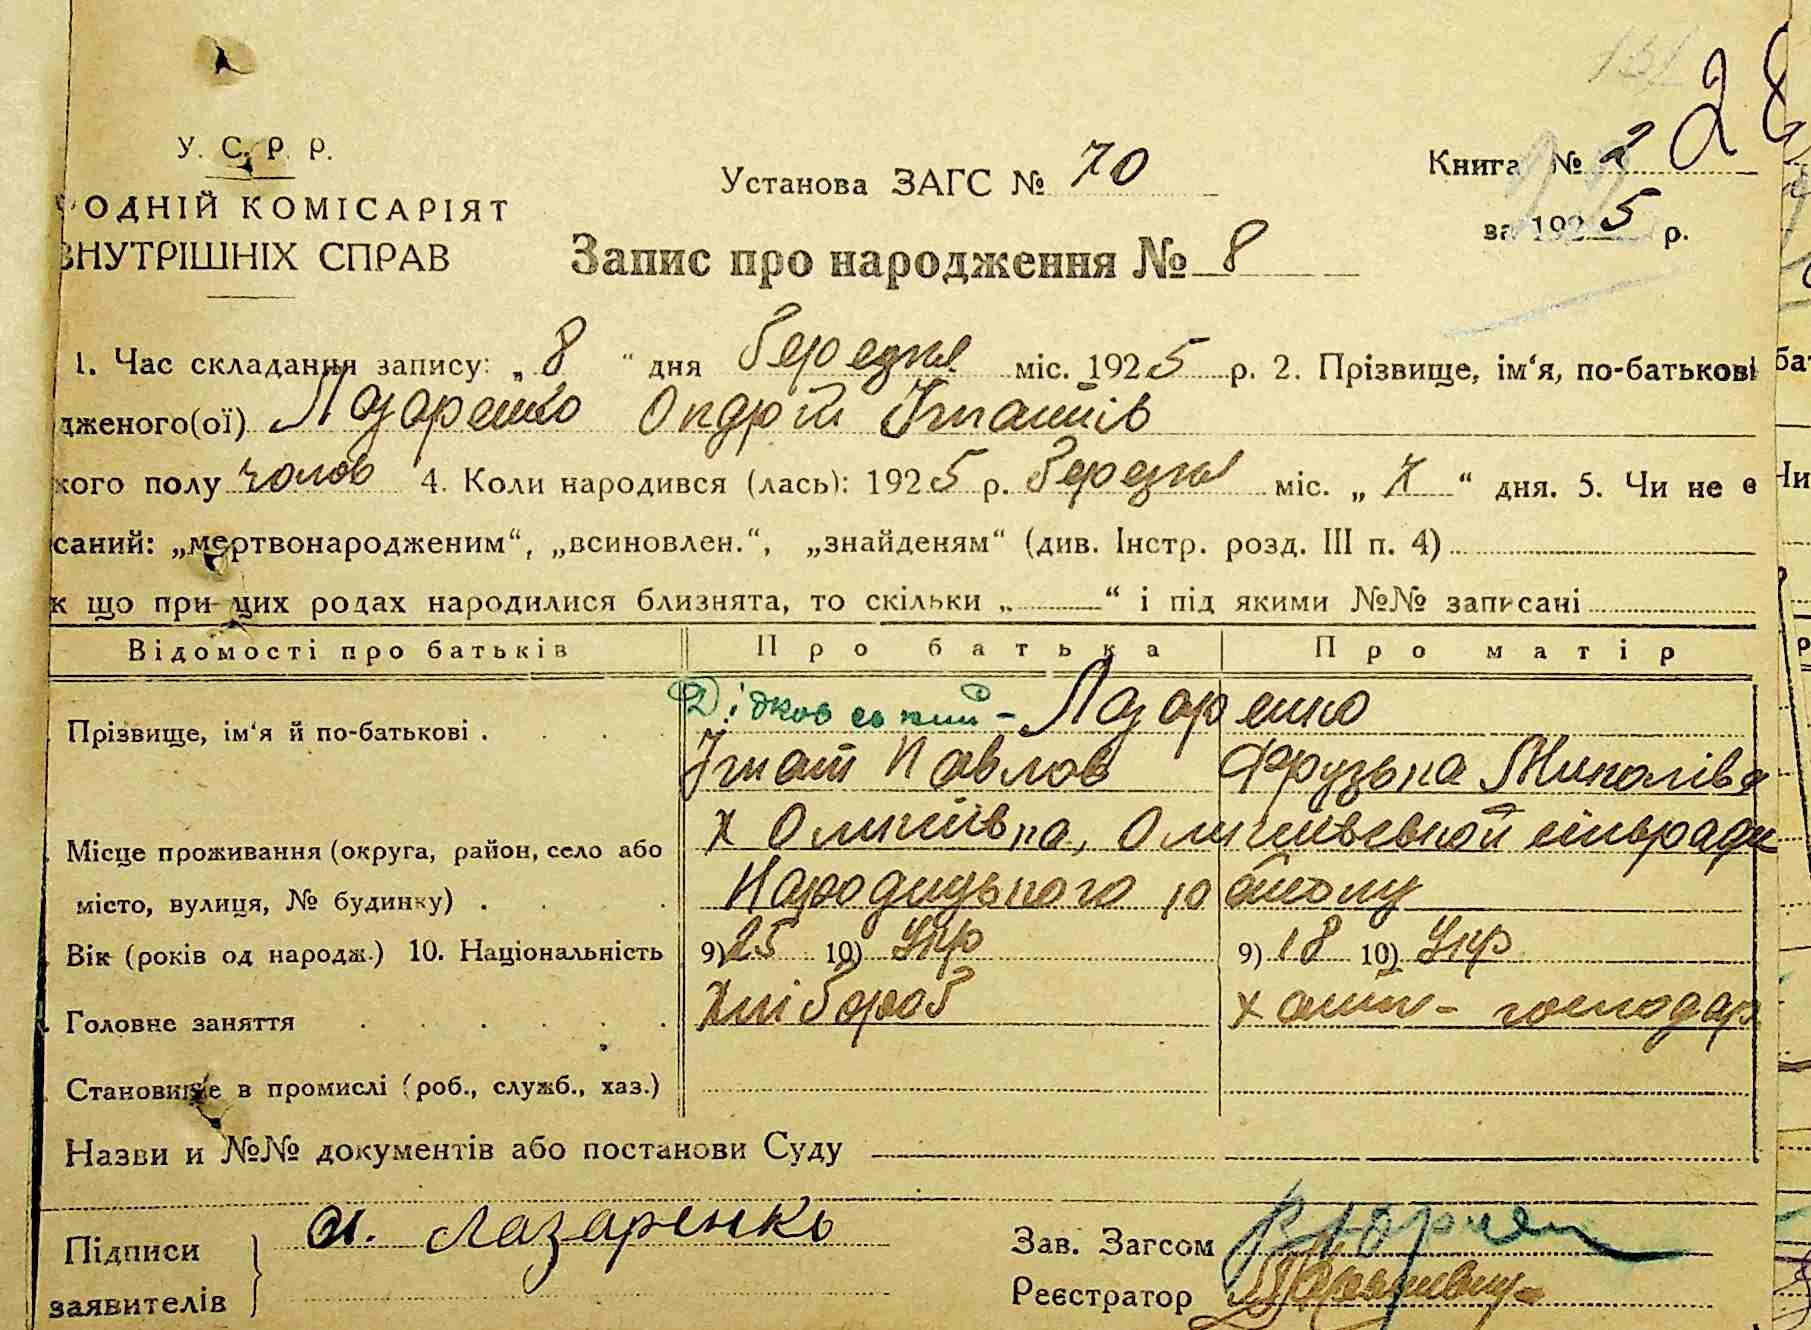 28
У. С. Р. Р.
Установа ЗАГС № 70
Книга № 2
ОДНІЙ КОМІСАРІЯТ
за 1925 р.
ВНУТРІШНІХ СПРАВ
Запис про народження № 8
1. Час складання запису: „8“ дня березня міс. 1925 р. 2. Прізвище, ім‘я, по-батькові
дженого(ої) Лазаренко Андрій Ігнатів
кого полу чолов 4. Коли народився (лась): 1925 р. березня міс. „7“ дня. 5. Чи не є
саний: „мертвонародженим“, „всиновлен.“, „знайденям“ (див. Інстр. розд. III п. 4)
к що при цих родах народилися близнята, то скільки „ “ і під якими №№ записані
Відомості про батьків Про батька Про матір
Прізвище, ім‘я й по-батькові . Дідковський - Лазаренко
Ігнат Павлов Фрузька Миколівна
Місце проживання (округа, район, село або х Олиїівка, сільради
місто, вулиця, № будинку) . Народицького району
Вік (років од народж.) 10. Національність 9) 25 10) Укр 9) 18 10) Укр
Головне заняття Хлібороб хатн- господар
Становище в промислі (роб., служб., хаз.)
Назви и №№ документів або постанови Суду
Підписи И. Лазаренко Зав. Загсом
заявителів Реєстратор